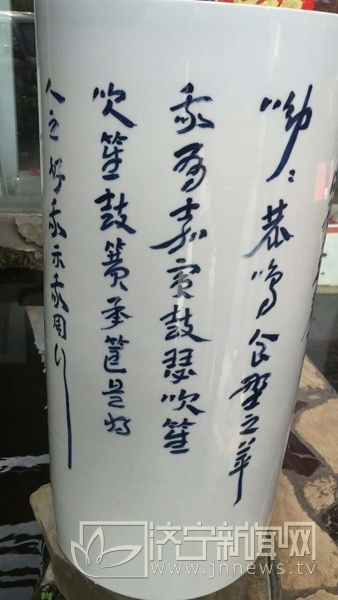 呦〻鹿鸣食野之苹
我有嘉宾鼓瑟吹笙
吹笙鼓簧承筐是将
人之好我示我周行
济宁新闻网
www.jnnews.tv